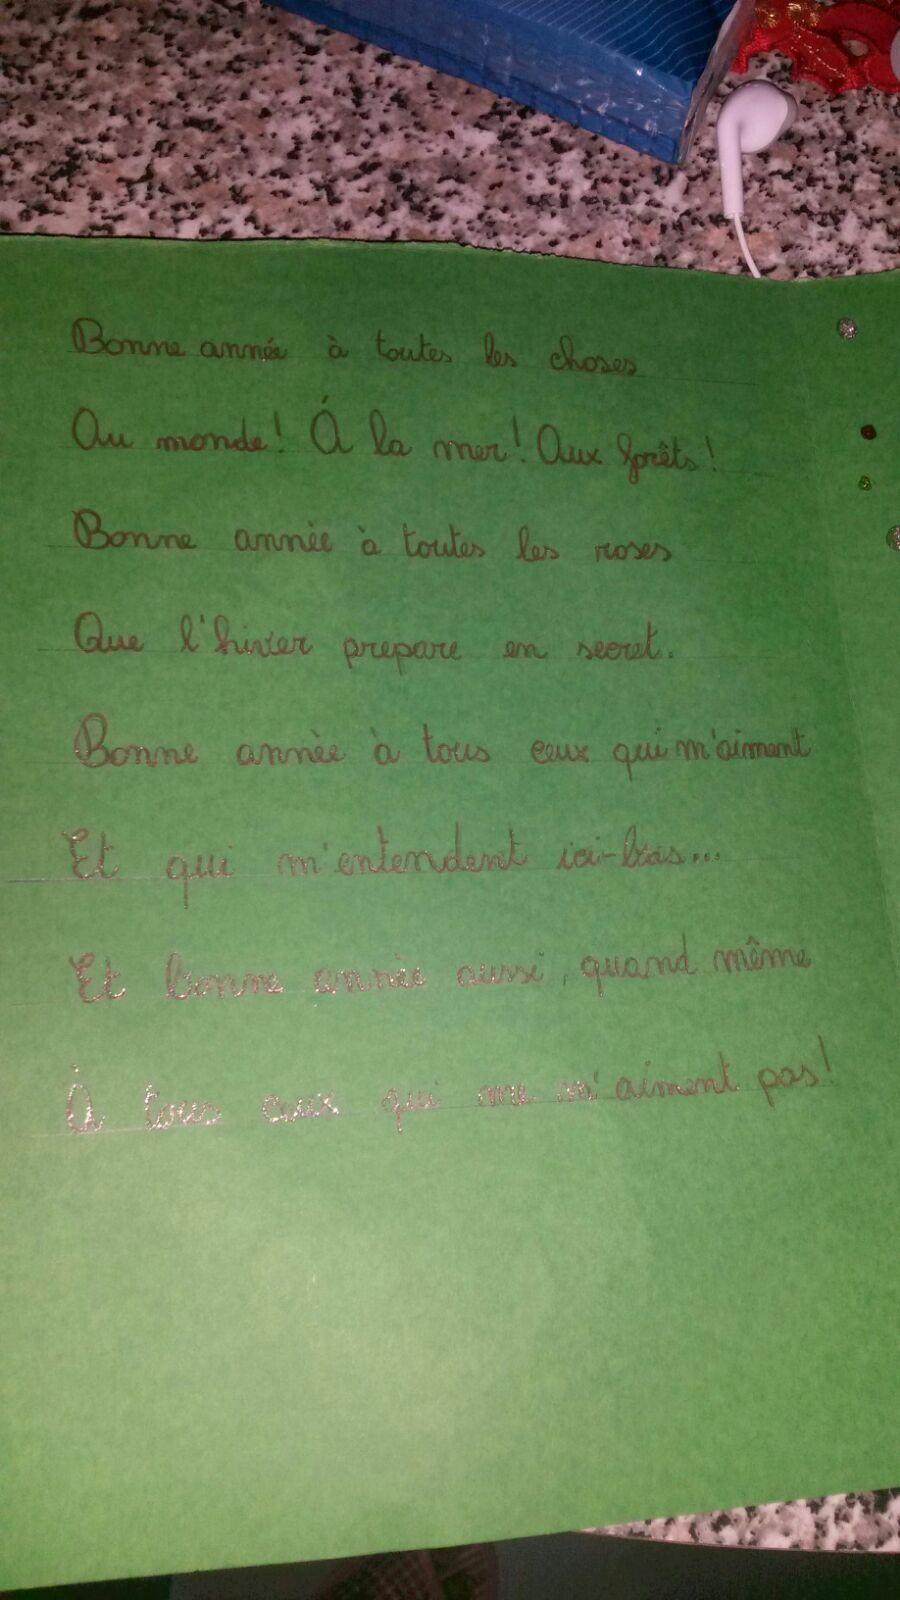 Bonne année à toutes les choses
Au monde! Á la mer! Aux forêts!
Bonne année à toutes les roses
Que l'hiver prepare en secret.
Bonne année à tous ceux qui m'aiment
Et qui m'entendent ici-bas...
Et bonne année aussi, quand même
À tous ceux qui me m'aiment pas!